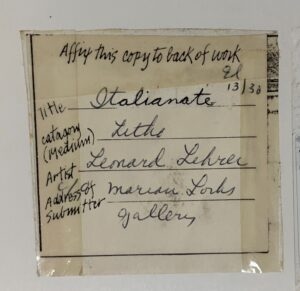 Affix this copy to back of work
Ed
13/30
Title Italianate
catagory
(Medium) Litho
Artist Leonard Lehrer
Address of
Submitter Marian Locks
gallery